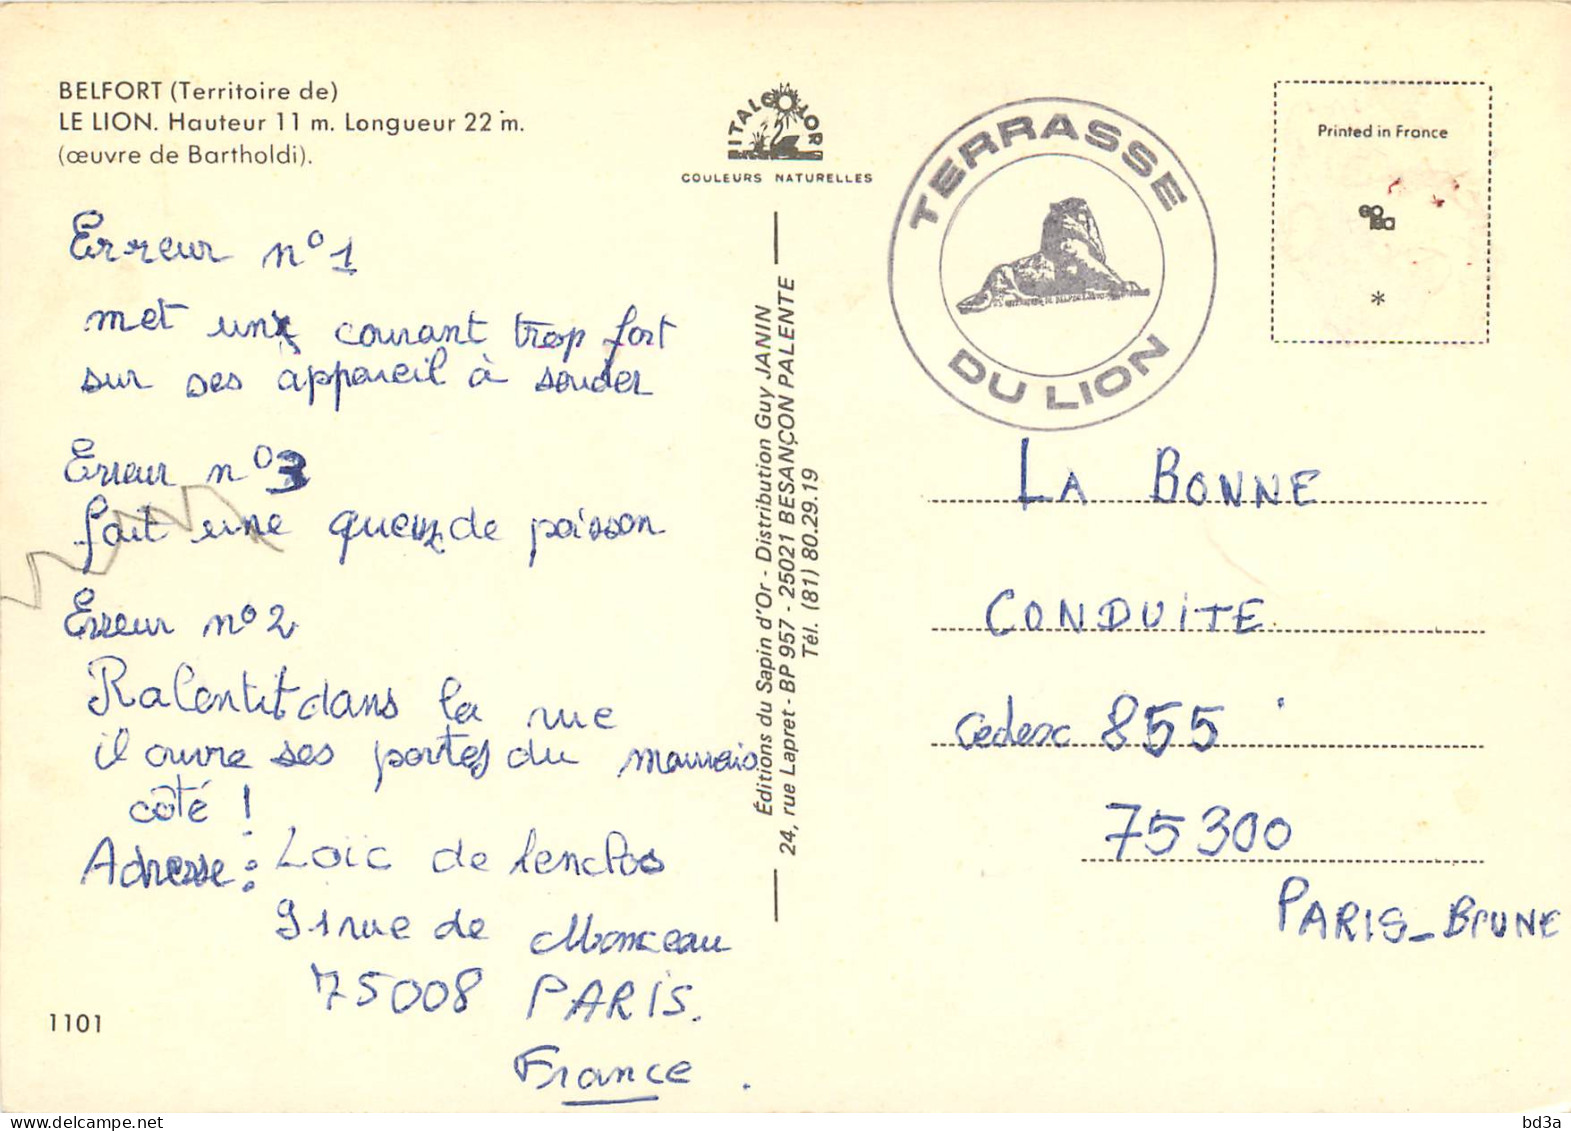 BELFORT (Territoire de)
LE LION. Hauteur 11 m. Longueur 22 m.
(œuvre de Bartholdi).
Erreur n°1
met un courant trop fort
sur ses appareil à souder
Erreur n°3
fait une queuz de poisson
Erreur n°2
Ralentit dans la rue
il ouvre ses portes du mauvais
côté !
Adresse : Loïc de lenclos
91 rue de Monceau
75008 PARIS.
France.
1101
ITALCOLOR
COULEURS NATURELLES
Éditions du Sapin d'Or - Distribution Guy JANIN
24, rue Lapret - BP 957 - 25021 BESANÇON PALENTE
Tél. (81) 80.29.19
TERRASSE
DU LION
Printed in France
*
LA BONNE
CONDUITE
cedex 855
75300
PARIS-BRUNE
bd3a